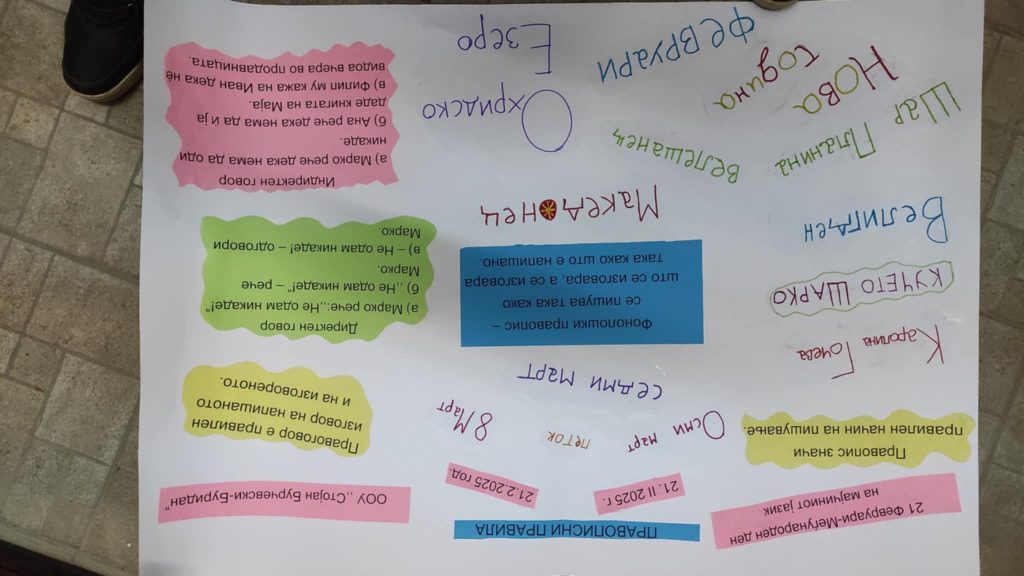 21 Февруари-Меѓународен ден
на мајчиниот јазик
ПРАВОПИСНИ ПРАВИЛА
ООУ ,,Стојан Бурчевски-Буридан“
21. II 2025 г.
21.2.2025 год.
Правопис значи
правилен начин на пишување.
Осми март
петок
8 Март
Правоговор е правилен
изговор на напишаното
и на изговореното.
седми март
Каролина Гочева
КУЧЕТО ШАРКО
Велигден
Фонолошки правопис –
се пишува така како
што се изговара, а се изговара
така како што е напишано.
Директен говор
а) Марко рече:,,Не одам никаде!“
б) ,,Не одам никаде!“ – рече
Марко.
в) – Не одам никаде! – одговори
Марко.
Македонец
Индиректен говор
а) Марко рече дека нема да оди
никаде.
б) Ана рече дека нема да ѝ ја
даде книгата на Маја.
в) Филип му кажа на Иван дека нѐ
видов вчера во продавницата.
Шар Планина
велешанец
Охридско
Езеро
НОВА
година
ФЕВРУАРИ